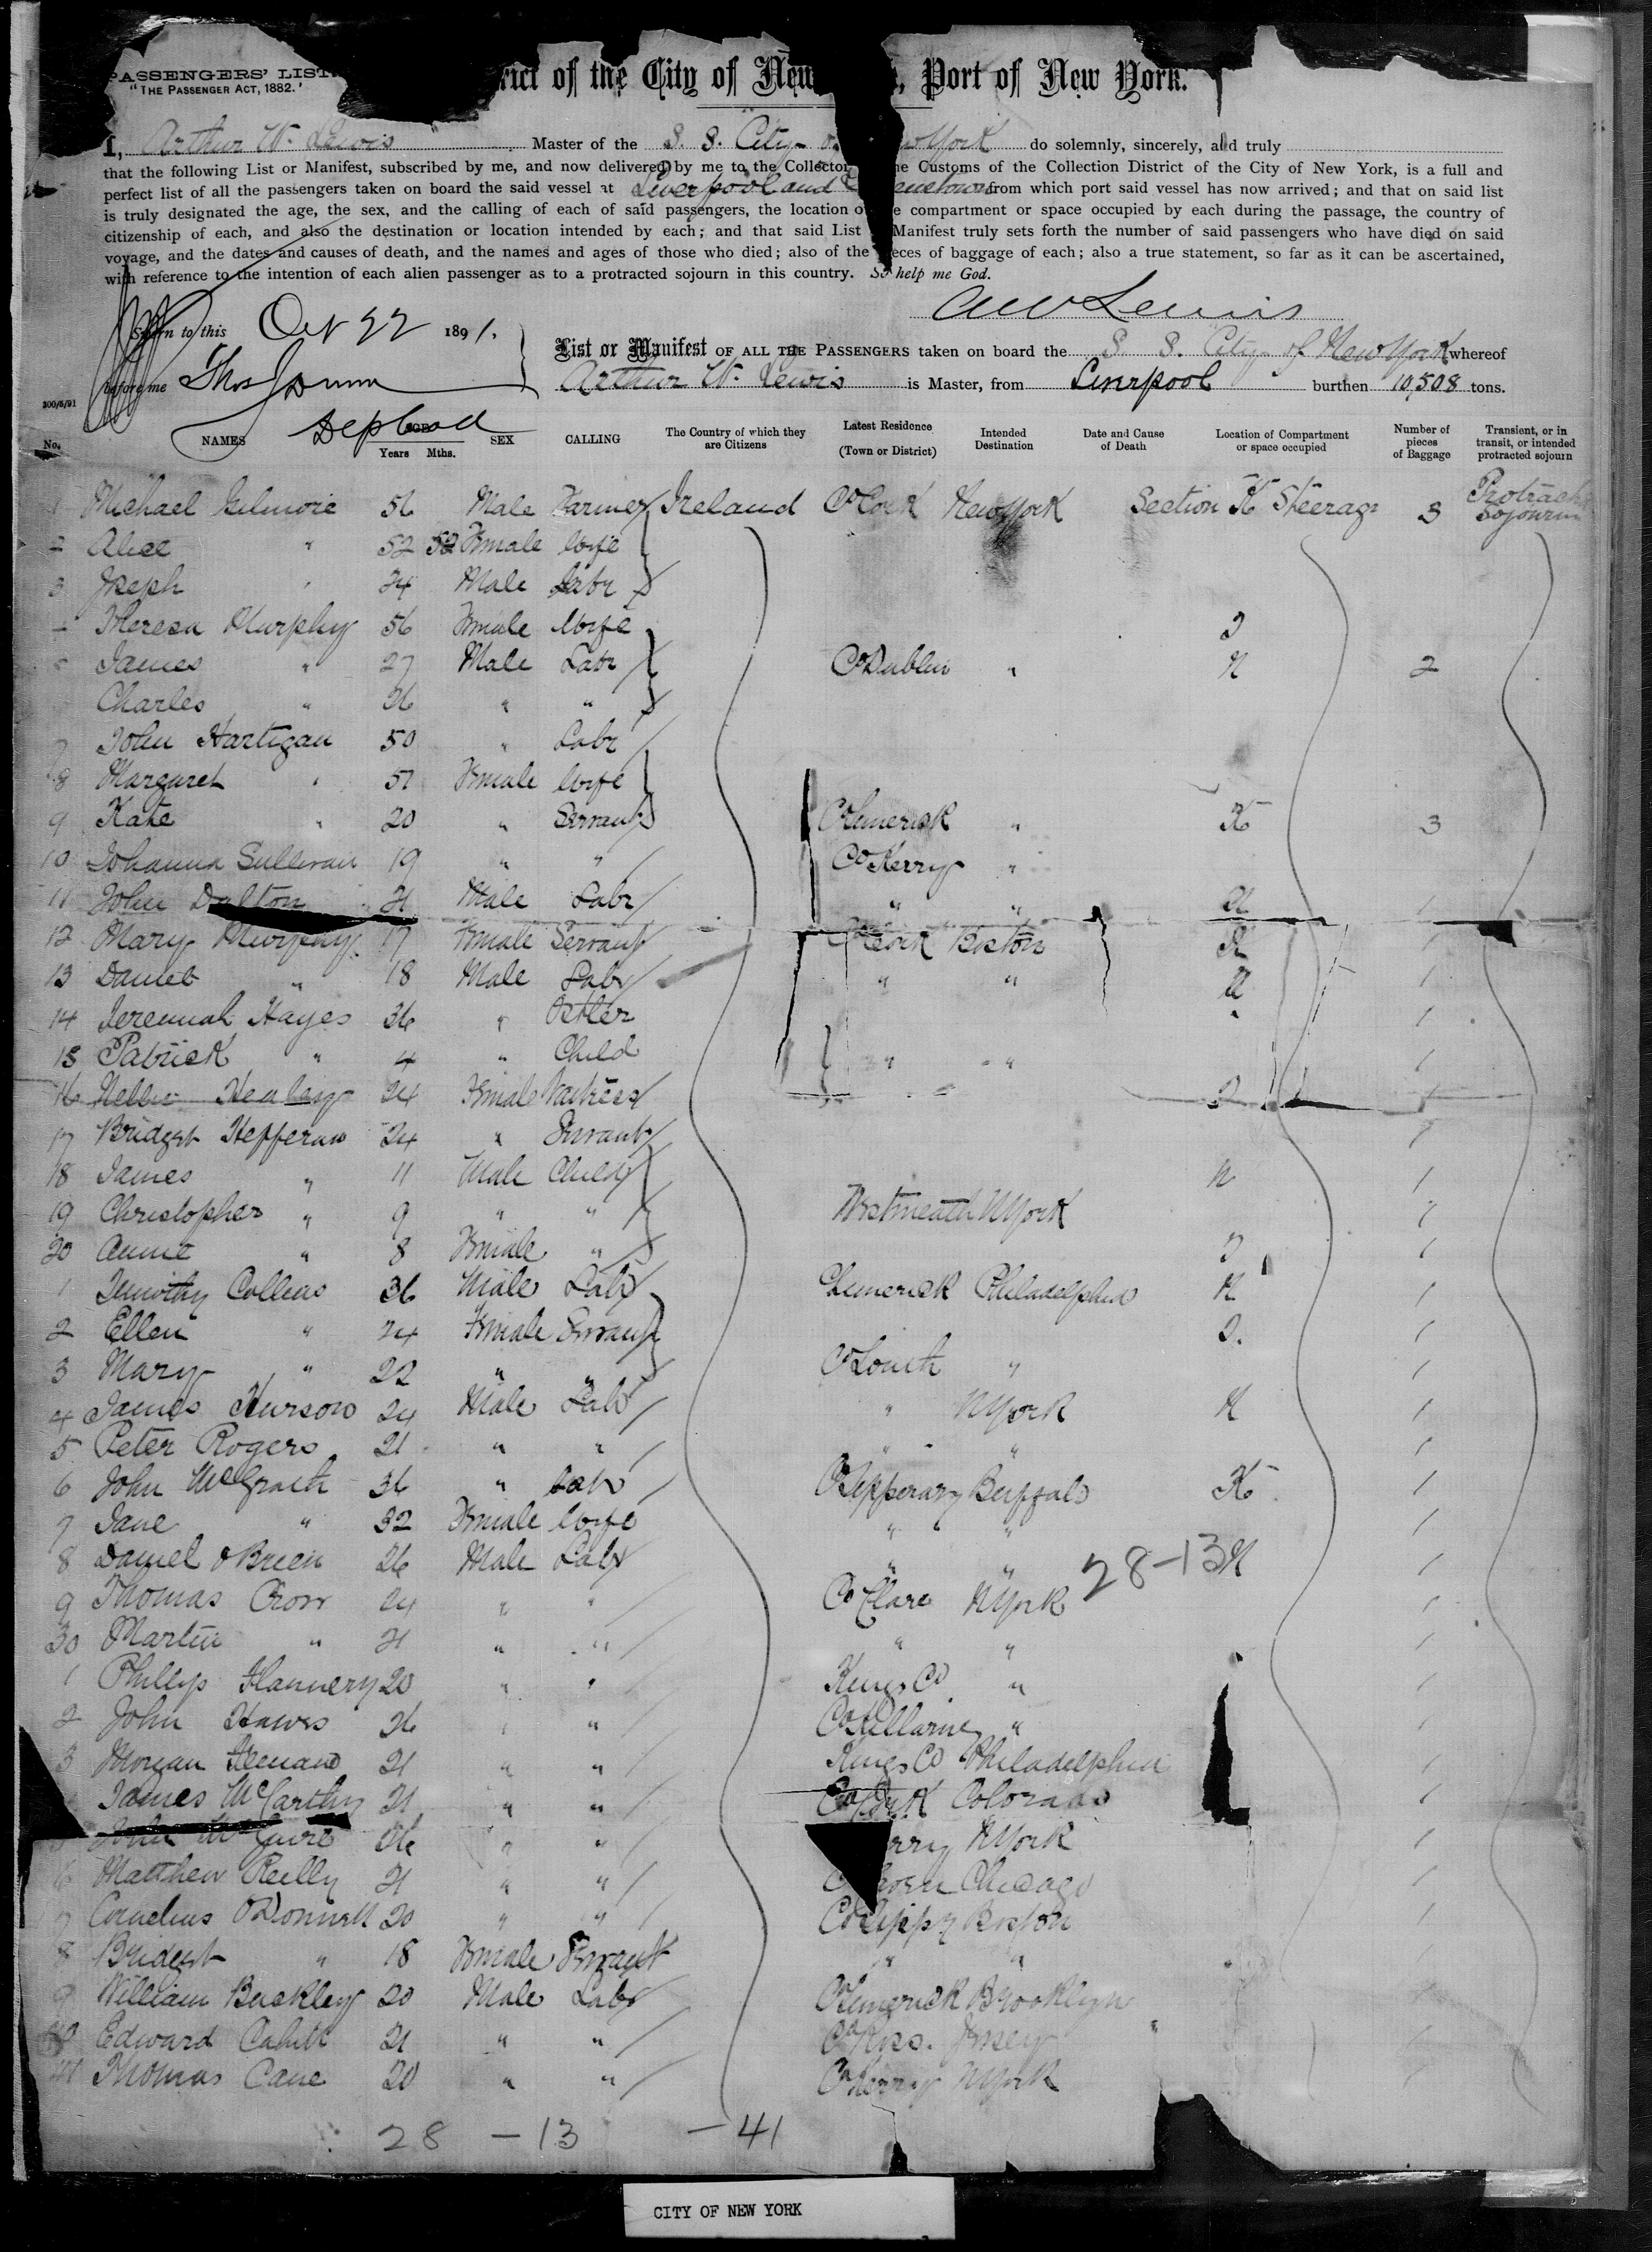 PASSENGERS' LIST.
"THE PASSENGER ACT, 1882."
rict of the City of New , Port of New York.
I, Arthur W. Lewis Master of the S. S. City o wYork do solemnly, sincerely, and truly
that the following List or Manifest, subscribed by me, and now delivered by me to the Collector he Customs of the Collection District of the City of New York, is a full and
perfect list of all the passengers taken on board the said vessel at Liverpool and eenstown from which port said vessel has now arrived; and that on said list
is truly designated the age, the sex, and the calling of each of said passengers, the location o e compartment or space occupied by each during the passage, the country of
citizenship of each, and also the destination or location intended by each; and that said List Manifest truly sets forth the number of said passengers who have died on said
voyage, and the dates and causes of death, and the names and ages of those who died; also of the ieces of baggage of each; also a true statement, so far as it can be ascertained,
with reference to the intention of each alien passenger as to a protracted sojourn in this country. So help me God.
AW Lewis
Sworn to this Oct 22 1891.
List or Manifest OF ALL THE PASSENGERS taken on board the S. S. City of New York whereof
before me Arthur W. Lewis is Master, from Liverpool burthen 10,508 tons.
300/5/91
No. NAMES AGE Years Mths. SEX CALLING The Country of which they are Citizens Latest Residence (Town or District) Intended Destination Date and Cause of Death Location of Compartment or space occupied Number of pieces of Baggage Transient, or in transit, or intended protracted sojourn
1 Michael Gilmore 56 Male Farmer Ireland Co Cork New York Section K Steerage 3 Protract Sojourn
2 Alice " 52 52 Female Wife
3 Joseph " 24 Male Labr
Theresa Murphy 56 Female Wife
James " 27 Male Labr Co Dublin " 2
Charles " 26 " "
7 John Hartigan 50 " Labr
8 Margaret " 51 Female Wife
9 Kate " 20 " Servant Co Limerick " K 3
10 Johanna Sullivan 19 " " Co Kerry "
11 John Dalton 21 Male Labr " "
12 Mary Murphy 17 Female Servant Co Cork Boston 1
13 Daniel " 18 Male Labr " " 1
14 Jeremiah Hayes 36 " Ostler 1
15 Patrick " 4 " Child " " 1
16 Nellie Healey 24 Female Waitress 1
17 Bridget Hefferan 24 " Servant 1
18 James " 11 Male Child 1
19 Christopher " 9 " " Westmeath NYork 1
20 Anne " 8 Female " 1
1 Timothy Collins 36 Male Labr Limerick Philadelphia 1
2 Ellen " 24 Female Servant 1
3 Mary " 22 " " Co Louth " 1
4 James Hurson 24 Male Labr " NYork 1
5 Peter Rogers 21 " " " " 1
6 John McGrath 36 " Labr Co Tipperary Buffalo K 1
7 Jane " 32 Female Wife " " 1
8 Daniel O'Brien 26 Male Labr " " 28-13 1
9 Thomas Crow 24 " " Co Clare NYork 1
30 Martin " 21 " " " " 1
1 Phillip Flannery 20 " " Kings Co " 1
2 John Hawes 26 " " "
3 21 " " Kings Co Philadelphia 1
James McCarthy 21 " " Co Cork Colorado 1
John McGuire 26 " " rry NYork 1
6 Matthew Reilly 21 " " Chicago 1
7 Cornelius O'Donnell 20 " " Co Tippy Boston 1
8 Bridget " 18 Female Servant " "
9 William Buckley 20 Male Labr Co Limerick Brooklyn
40 Edward Cahill 21 " " Jersey "
41 Thomas Cane 20 " " Co Kerry NYork
28 - 13 - 41
CITY OF NEW YORK